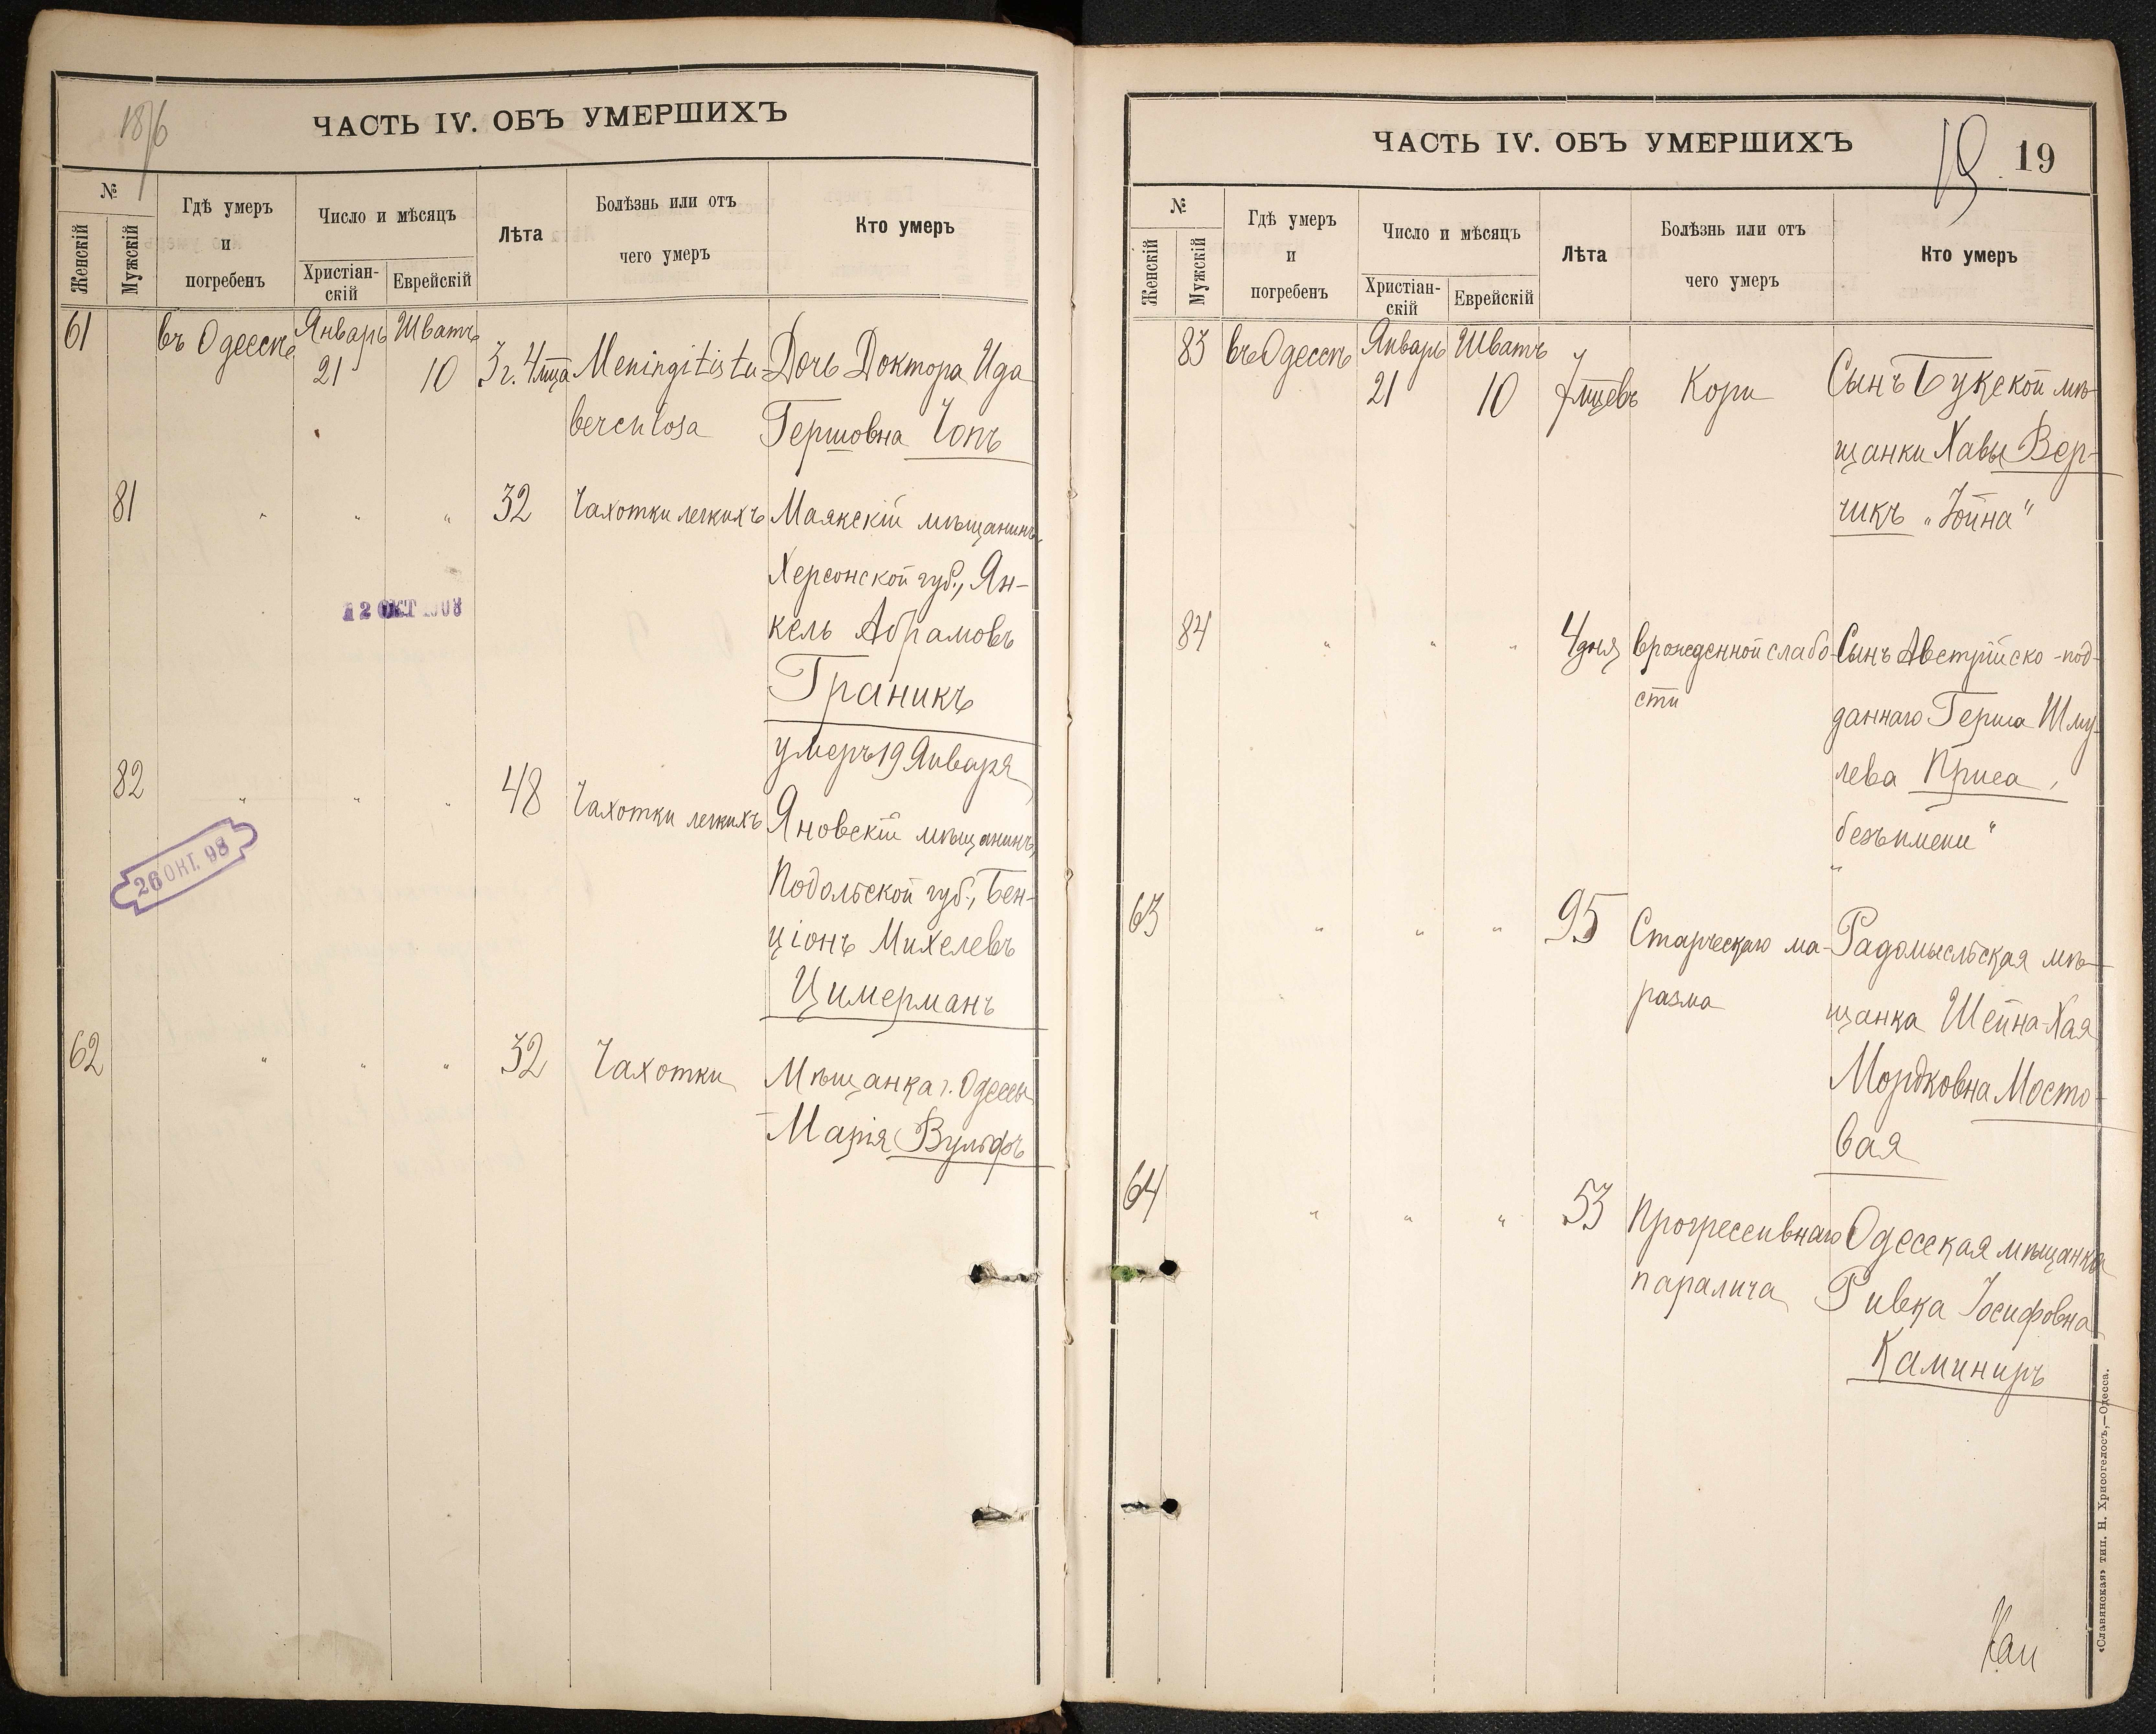 1876
ЧАСТЬ IV. ОБЪ УМЕРШИХЪ
№
Женскій
Мужскій
Гдѣ умеръ
и
погребенъ
Число и мѣсяцъ
Христіан-
скій
Еврейскій
Лѣта
Болѣзнь или отъ
чего умеръ
Кто умеръ
61 въ Одессѣ Январь Шватъ
21 10 3 г. 4 мца Meningitis tu- Дочь Доктора Ида
berculosa Гершовна Чопъ
81 " " " 32 Чахотки легкихъ Маякскій мѣщанинъ,
Херсонской губ., Ян-
кель Абрамовъ
Граникъ
умеръ 19 Января
12 ОКТ 1908
82 " " " 48 Чахотки легкихъ Яновскій мѣщанинъ,
Подольской губ., Бен-
ціонъ Михелевъ
Цимерманъ
26 ОКТ. 98
62 " " " 32 Чахотки Мѣщанка г. Одессы
Марія Вульфъ
ЧАСТЬ IV. ОБЪ УМЕРШИХЪ
19 19
№
Женскій
Мужскій
Гдѣ умеръ
и
погребенъ
Число и мѣсяцъ
Христіан-
скій
Еврейскій
Лѣта
Болѣзнь или отъ
чего умеръ
Кто умеръ
83 въ Одессѣ Январь Шватъ
21 10 7 мцевъ Кори Сынъ Букской мѣ-
щанки Хавы Вер-
чикъ „Іойна"
84 " " " 4 дня врожденной слабо- Сынъ Австрійско-под-
сти даннаго Герша Шму-
лева Приса,
„безъ имени"
63 " " " 95 Старческаго ма- Радомысльская мѣ-
разма щанка Шейна-Хая
Мордковна Мосто-
вая
64 " " " 53 Прогрессивнаго Одесская мѣщанка
паралича Ривка Іосифовна
Каминиръ
«Славянская» тип. Н. Хрисогелосъ,—Одесса.